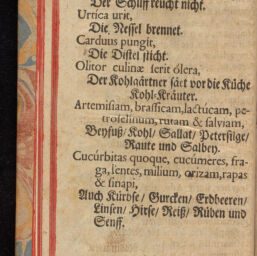 Der Schilff reucht nicht.
Urtica urit,
Die Nessel brennet.
Carduus pungit,
Die Distel sticht.
Olitor culinæ serit ólera,
Der Kohlgärtner säet vor die Küche
Kohl-Kräuter.
Artemisiam, brassicam, lactucam, pe-
troselinum, rutam & salviam,
Beyfuß / Kohl / Sallat / Petersilge /
Raute und Salbey.
Cucúrbitas quoque, cucúmeres, fra-
ga, lentes, milium, orizam, rapas
& sinapi,
Auch Kürbse / Gurcken / Erdbeeren /
Linsen / Hirse / Reiß / Rüben und
Senff.